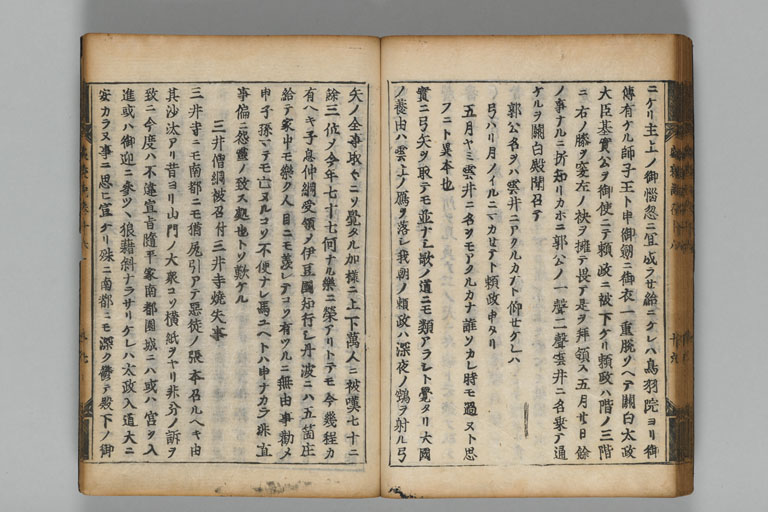 ニケリ主上ノ御惱忽ニ宜成ラせ給ニケレハ鳥羽院ヨリ御
傳有ケル師子王ト申御劔ニ御衣一重脱ソヘテ關白太政
大臣基實公ヲ御使ニテ頼政ニ被下ケリ頼政ハ階ノ三階
ニ右ノ膝ヲ突左ノ袂ヲ擴テ畏テ是ヲ拜領ス五月廿日餘
ノ事ナルニ折知リカホニ郭公ノ一聲二聲雲井ニ名乗テ通
ケルヲ關白殿聞召テ
郭公名ヲハ雲井ニアクルカナト仰せケレハ
弓ハリ月ノイルニマカせテト頼政申タリ
五月ヤミ雲井ニ名ヲモアクルカナ誰ソカレ時モ過ヌト思
フニト異本也
實ニ弓矢ヲ取テモ並ナシ歌ノ道ニモ類アラシト覺タリ大國
ノ養由ハ雲上ノ鴈ヲ落シ我朝ノ頼政ハ深夜ノ鵼ヲ射ル弓
矢ノ全事取々ニソ覺タル加様ニ上下萬人ニ被嘆七十ニ
餘三位メ今年七十七何ナル樂ニ榮アリトテモ今幾程カ
有ヘキ子息仲綱受領メ伊豆國知行シ丹波ニハ五箇庄
給テ家中モ樂ク人目ニモ羨シテコソ有ツルニ無由事勸メ
申子孫マテモ亡ヌルコソ不便ナレ馬ユヘトハ申ナカラ殊直
事偏ニ怨靈ノ致ス處也トソ歎ケル
三井僧綱被召付三井寺燒失事
三井寺ニモ南都ニモ猶尻引アテ惡徒ノ張本召ルヘキ由
其沙汰アリ昔ヨリ山門ノ大衆コソ横紙ヲヤリ非分ノ訴ヲ
致ニ今度ハ不違宣旨隨平家南都園城ニハ或ハ宮ヲ入
進或ハ御迎ニ參ツヽ狼藉斜ナラサリケレハ太政入道大ニ
安カラヌ事ニ思ヒ宣ケリ殊ニ南都ニモ深ク鬱テ殿下ノ御